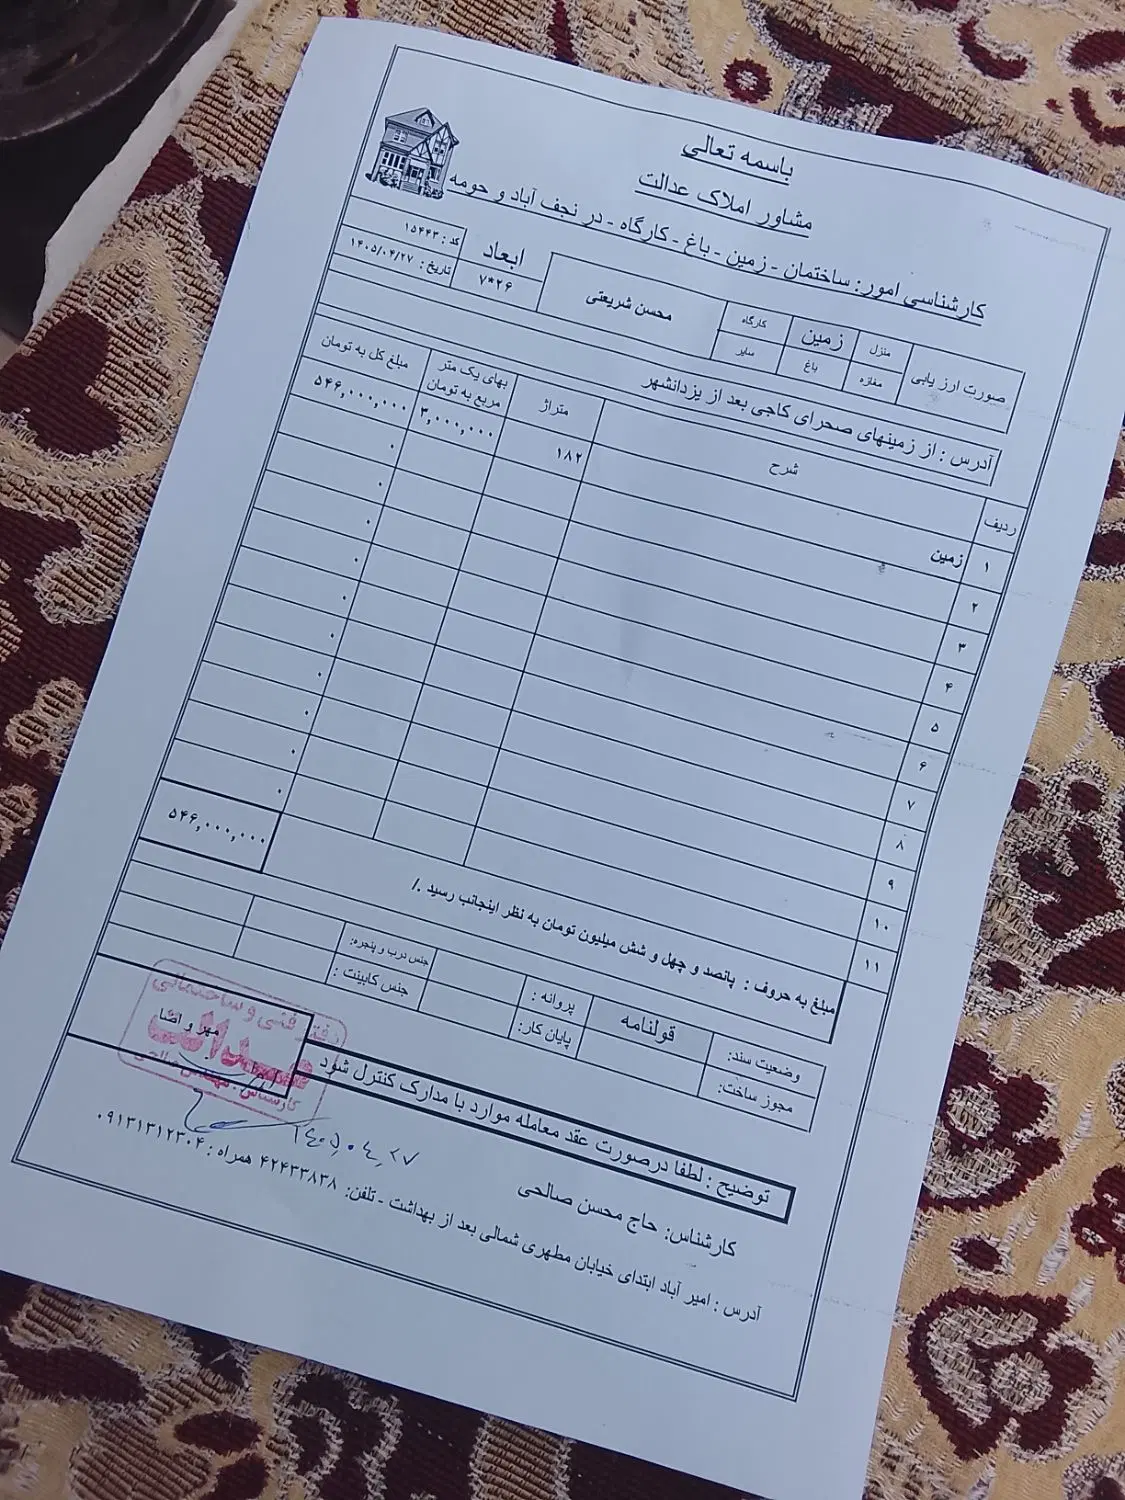 باسمه تعالی
مشاور املاک عدالت
کارشناسی امور : ساختمان - زمین - باغ - کارگاه - در نجف آباد و حومه
صورت ارز یابی
منزل
زمین
کارگاه
مغازه
باغ
سایر
محسن شریعتی
ابعاد
۷*۲۶
کد : ۱۵۴۴۳
تاریخ : ۱۴۰۵/۰۴/۲۷
آدرس : از زمینهای صحرای کاجی بعد از یزدانشهر
ردیف شرح متراژ بهای یک متر مربع به تومان مبلغ کل به تومان
۱ زمین ۱۸۲ ۳,۰۰۰,۰۰۰ ۵۴۶,۰۰۰,۰۰۰
۲ ۰
۳ ۰
۴ ۰
۵ ۰
۶ ۰
۷ ۰
۸ ۰
۹ ۰
۱۰ ۰
۱۱ ۰
۵۴۶,۰۰۰,۰۰۰
مبلغ به حروف : پانصد و چهل و شش میلیون تومان به نظر اینجانب رسید ./
وضعیت سند: قولنامه پروانه : جنس درب و پنجره:
مجوز ساخت: پایان کار: جنس کابینت :
توضیح : لطفا درصورت عقد معامله موارد با مدارک کنترل شود
مهر و امضا
دفتر فنی و ساختمانی
عدالت
کارشناس : مهندس صالحی
۱۴۰۵,۰۴,۲۷
کارشناس: حاج محسن صالحی
آدرس : امیر آباد ابتدای خیابان مطهری شمالی بعد از بهداشت - تلفن: ۴۲۴۳۳۸۳۸ همراه : ۰۹۱۳۱۳۱۲۳۰۴